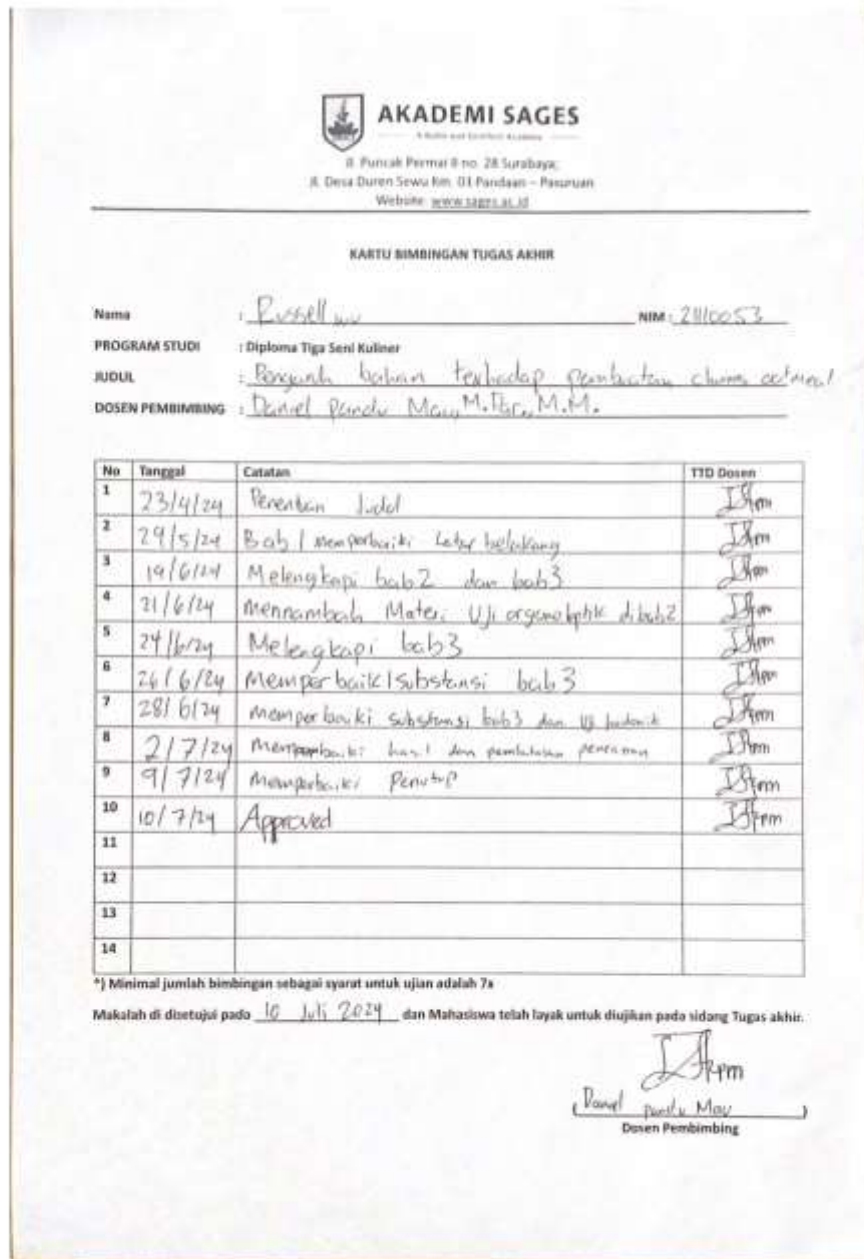 AKADEMI SAGES
Jl. Puncak Permai II no. 28 Surabaya;
Jl. Desa Duren Sewu Km. 01 Pandaan – Pasuruan
Website: www.sages.ac.id
KARTU BIMBINGAN TUGAS AKHIR
Nama : Russell NIM : 2110053
PROGRAM STUDI : Diploma Tiga Seni Kuliner
JUDUL : Pengaruh bahan terhadap pembuatan churros oatmeal
DOSEN PEMBIMBING : Daniel Pandu Mau, M.Par., M.M.
No Tanggal Catatan TTD Dosen
1 23/4/24 Penentuan Judul
2 29/5/24 Bab 1 memperbaiki Latar belakang
3 19/6/24 Melengkapi bab2 dan bab3
4 21/6/24 Mennambah Materi Uji organoleptik di bab2
5 24/6/24 Melengkapi bab3
6 26/6/24 Memperbaiki substansi bab3
7 28/6/24 memperbaiki substansi bab3 dan Uji hedonik
8 2/7/24 Memperbaiki hasil dan pembahasan
9 9/7/24 Memperbaiki Penutup
10 10/7/24 Approved
11
12
13
14
*) Minimal jumlah bimbingan sebagai syarat untuk ujian adalah 7x
Makalah di disetujui pada 10 Juli 2024 dan Mahasiswa telah layak untuk diujikan pada sidang Tugas akhir.
( Daniel pandu Mau )
Dosen Pembimbing